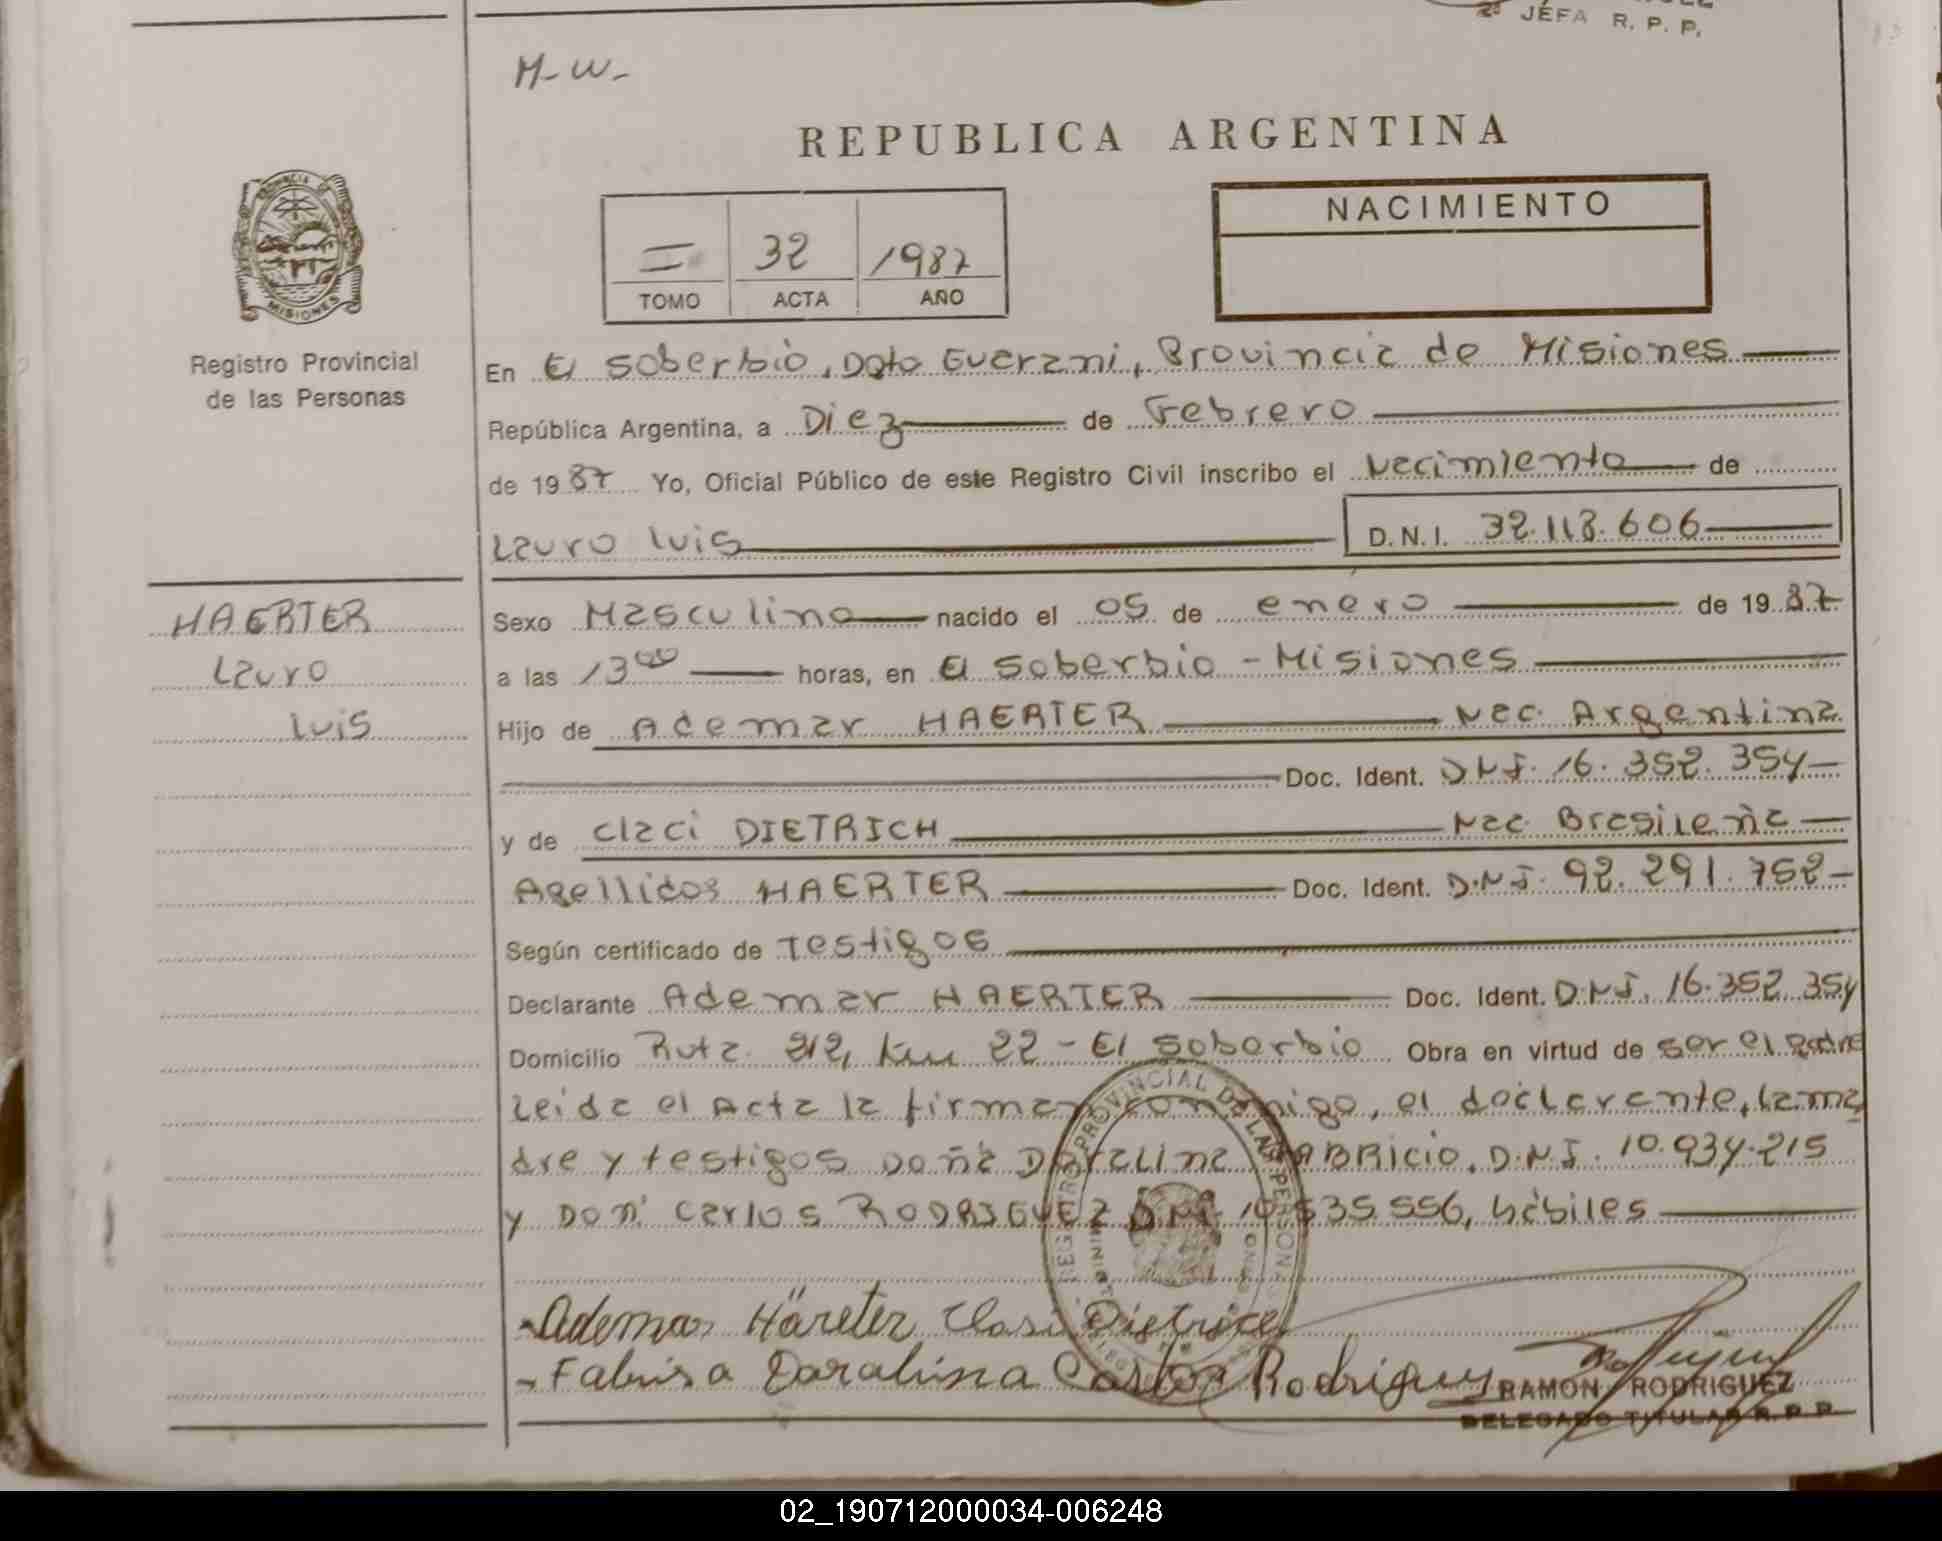 2ª JEFA R. P. P.
M-W-
REPUBLICA ARGENTINA
PROVINCIA DE
MISIONES
Registro Provincial
de las Personas
I 32 1987
TOMO ACTA AÑO
NACIMIENTO
En El Soberbio, Dpto Guarani, Provincia de Misiones
República Argentina, a Diez de Febrero
de 1987 Yo, Oficial Público de este Registro Civil inscribo el Nacimiento de
Lauro Luis D.N.I. 32.113.606
HAERTER
Lauro
Luis
Sexo Masculino nacido el 05 de enero de 1987
a las 13 00 horas, en El Soberbio - Misiones
Hijo de Ademar HAERTER Nac. Argentina
Doc. Ident. DNI. 16.352.354
y de Claci DIETRICH Nac Brasileña
Apellidos HAERTER Doc. Ident. D.N.I. 92.291.752
Según certificado de Testigos
Declarante Ademar HAERTER Doc. Ident. D.N.I. 16.352.354
Domicilio Ruta 212, Km 22 - El Soberbio Obra en virtud de ser el padre
Leida el Acta la firman conmigo, el declarante, la ma
dre y testigos Doña FABRICIO, D.N.I. 10.934.215
y Don Carlos RODRIGUEZ DNI 535.556, hábiles
Ademar Häreter Clasi
Rodriguez
RAMON RODRIGUEZ
DELEGADO TITULAR R. P. P.
02_190712000034-006248